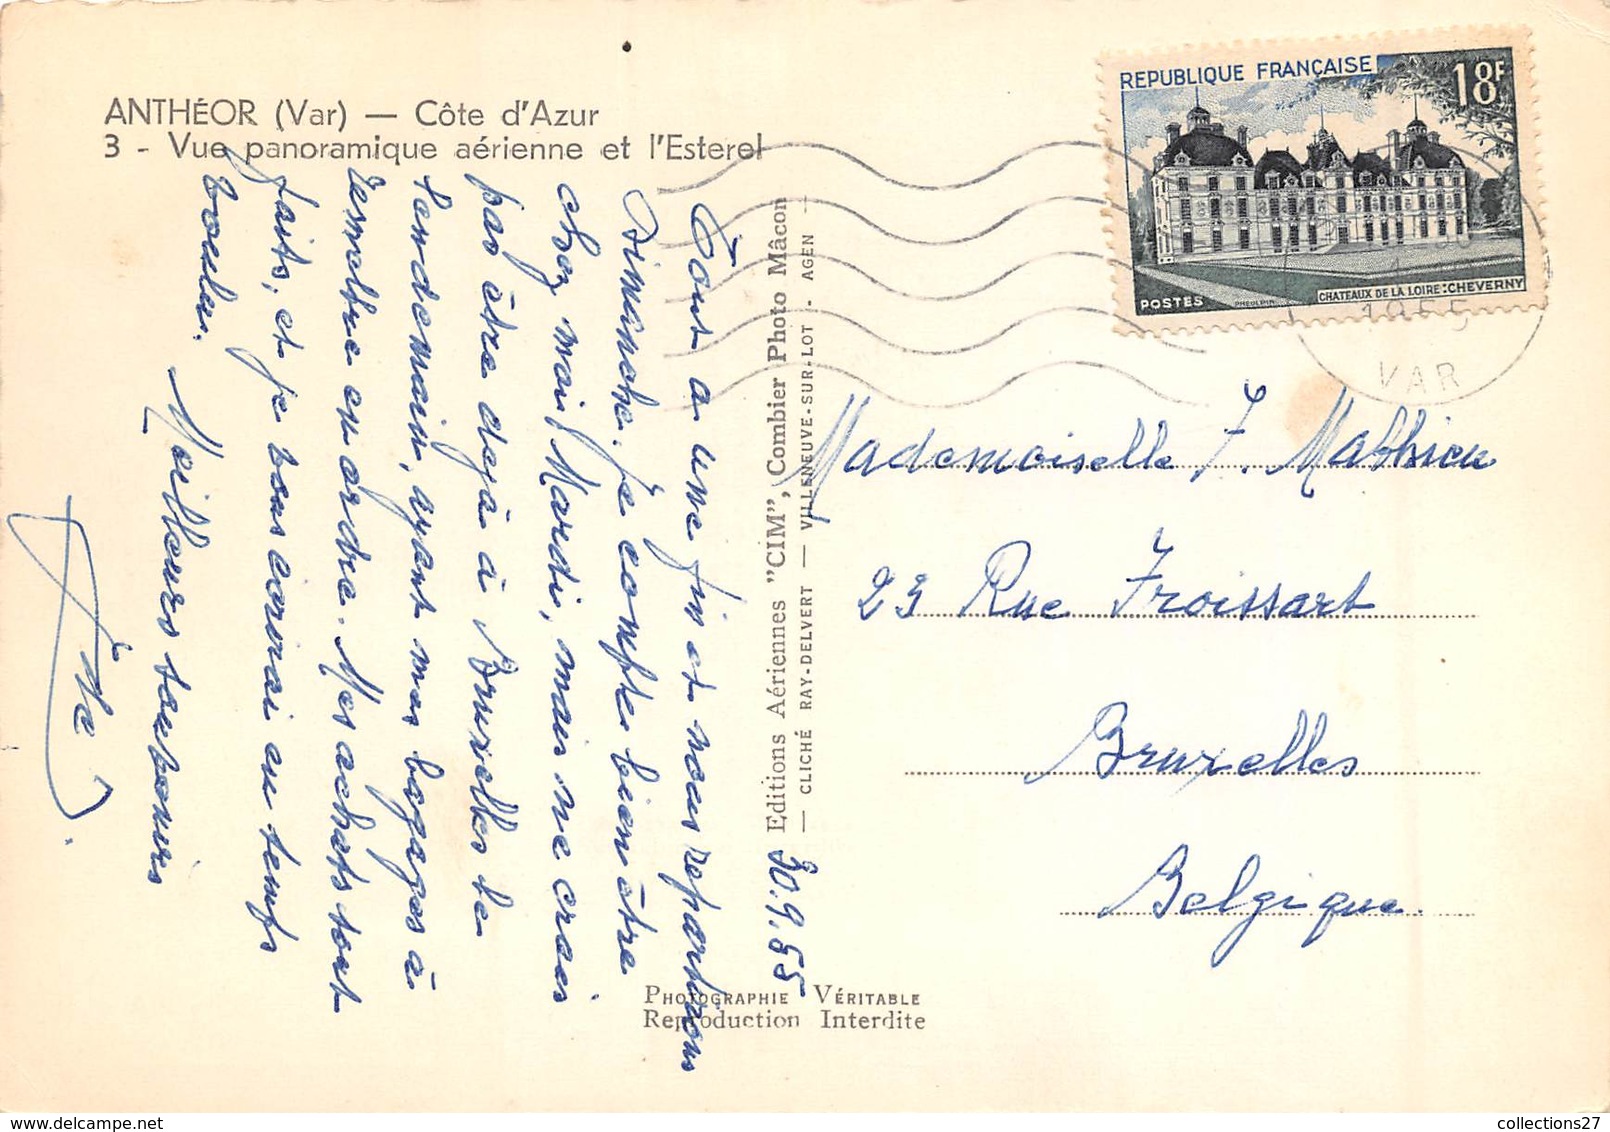 ANTHÉOR (Var) — Côte d'Azur
3 - Vue panoramique aérienne et l'Esterel
30.9.55
Tout a une fin et nous repartirons
Dimanche. Je compte bien être
chez moi Mardi, mais ne crois
pas être dejà à Bruxelles le
lendemain, ayant mes bagages à
remettre en ordre. Mes achats sont
faits, et je vous écrirai en temps
voulu.
Meilleurs souvenirs
Editions Aériennes "CIM", Combier Photo Mâcon
— CLICHÉ RAY-DELVERT — VILLENEUVE-SUR-LOT - AGEN —
PHOTOGRAPHIE VÉRITABLE
Reproduction Interdite
REPUBLIQUE FRANÇAISE
18F
POSTES
PHEULPIN
CHATEAUX DE LA LOIRE: CHEVERNY
1955
VAR
Mademoiselle J. Mathieu
23 Rue Froissart
Bruxelles
Belgique.
collections27